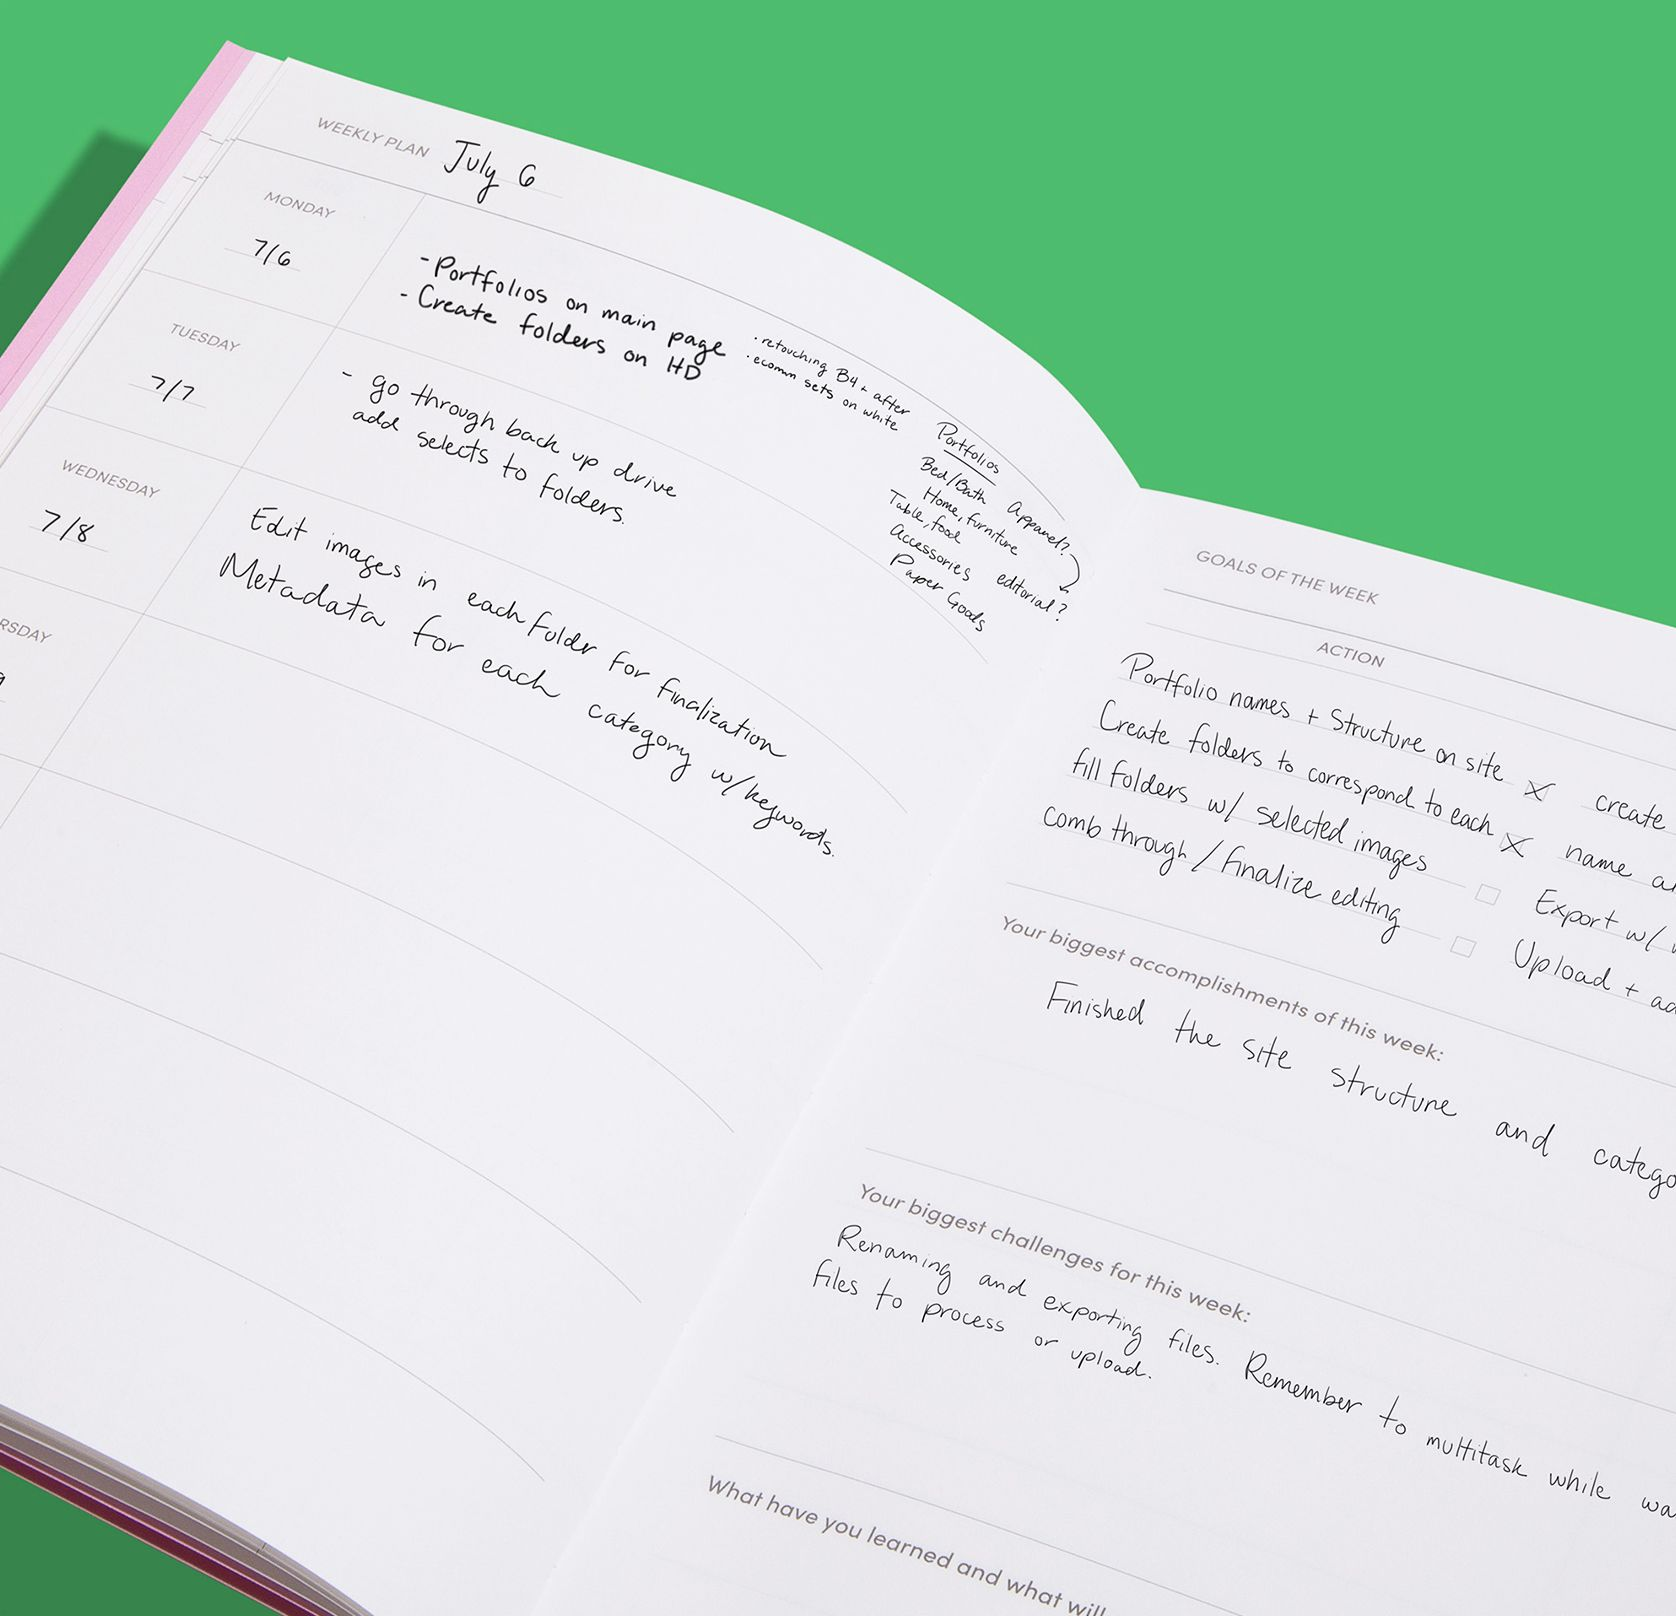 WEEKLY PLAN July 6
MONDAY
7/6
- Portfolios on main page
- Create folders on HD
· retouching B4 + after
· ecomm sets on white
TUESDAY
7/7
- go through back up drive
add selects to folders.
Portfolios
Bed/Bath Apparel?
Home, furniture
Table, food
Accessories editorial?
Paper Goods
WEDNESDAY
7/8
Edit images in each folder for finalization
Metadata for each category w/keywords.
RSDAY
9
GOALS OF THE WEEK
ACTION
Portfolio names + Structure on site
Create folders to correspond to each
fill folders w/ selected images
comb through / finalize editing
create
name
Export w/
Upload +
Your biggest accomplishments of this week:
Finished the site structure and catego
Your biggest challenges for this week:
Renaming and exporting files. Remember to multitask while wa
files to process or upload.
What have you learned and what will